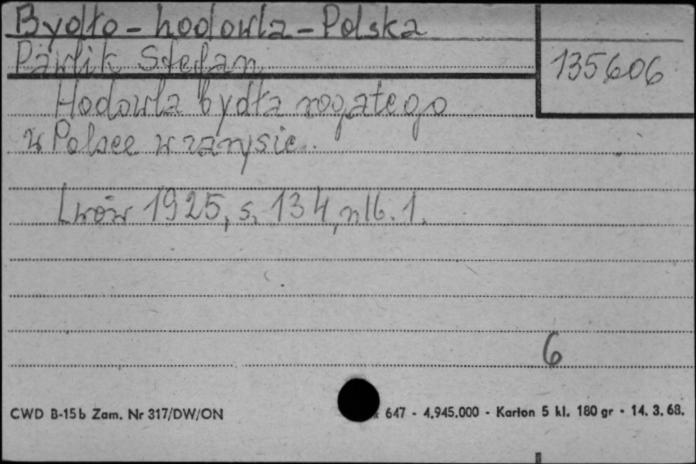 Bydło - hodowla - Polska
Pawlik Stefan
135606
Hodowla bydła rogatego
w Polsce w zarysie.
Lwów 1925, s. 134, nlb. 1.
6
CWD B-15b Zam. Nr 317/DW/ON
647 - 4.945.000 - Karton 5 kl. 180 gr - 14. 3. 68.